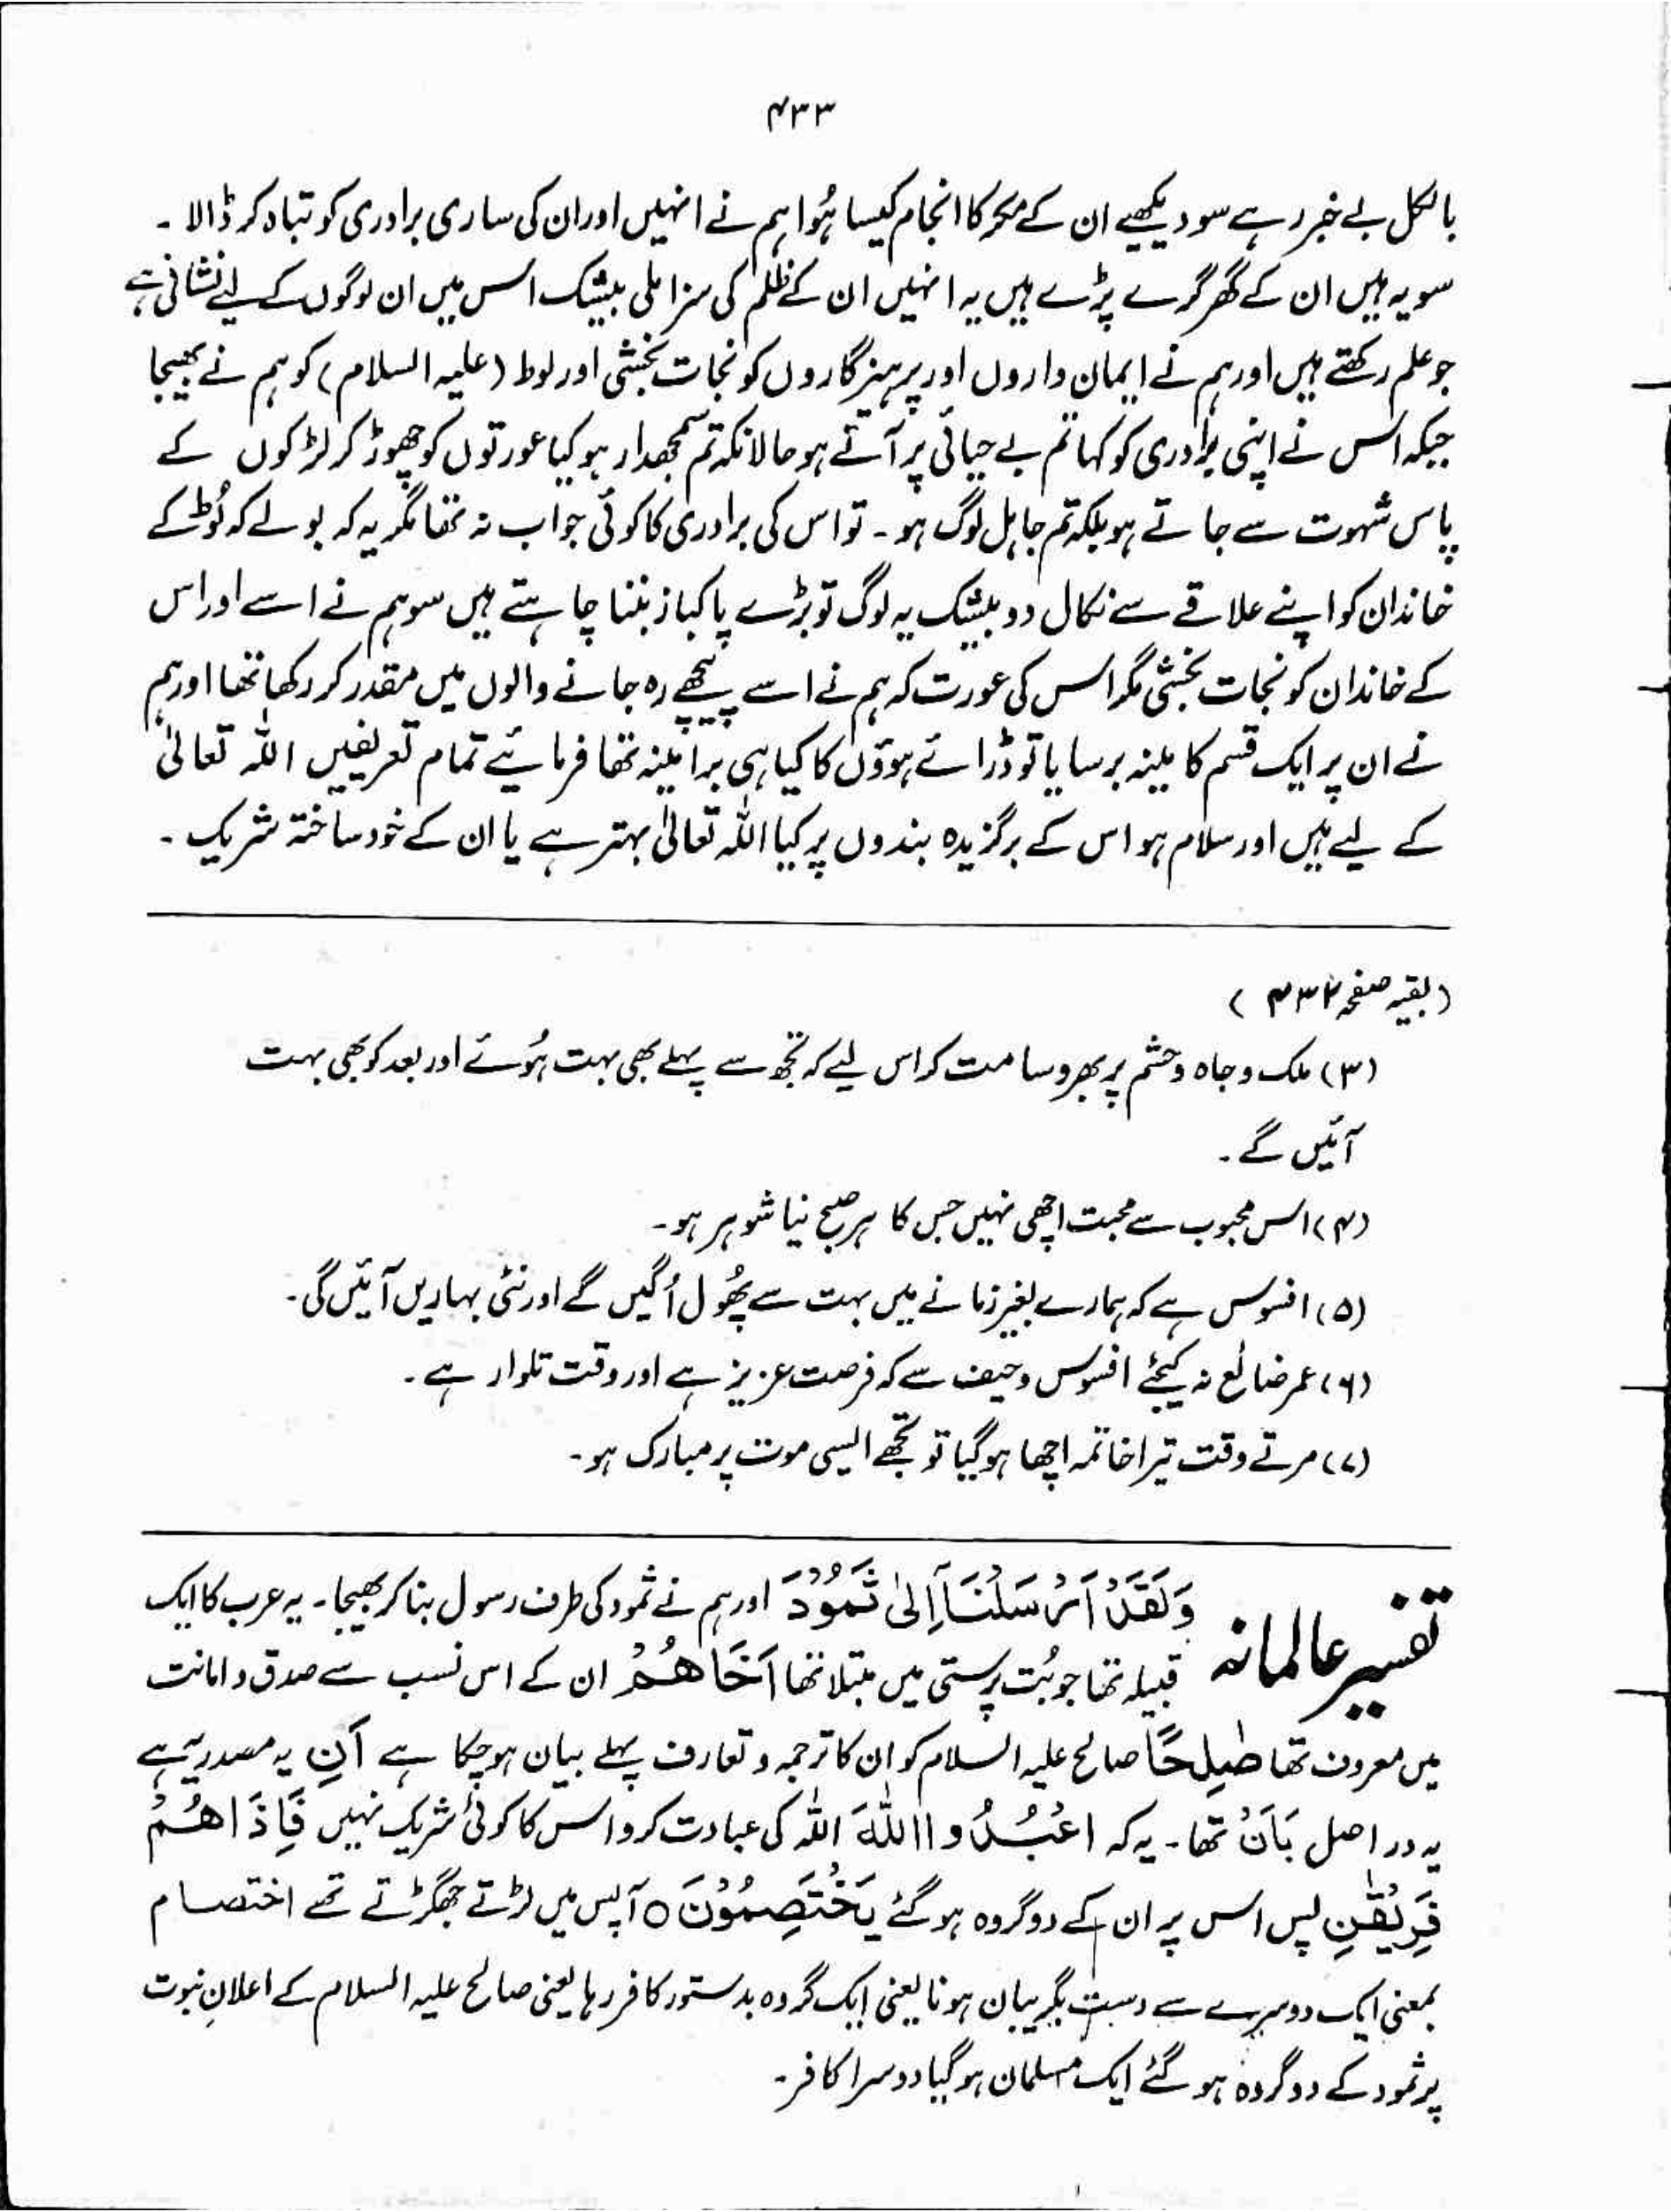 ۴۳۳
بالکل بے خبر رہے سو دیکھیے ان کے مکر کا انجام کیسا ہُوا ہم نے انہیں اور ان کی ساری برادری کو تباہ کر ڈالا ۔
سو یہ ہیں ان کے گھر گرے پڑے ہیں یہ انہیں ان کے ظلم کی سزا ملی بیشک اس میں ان لوگوں کے لیے نشانی ہے
جو علم رکھتے ہیں اور ہم نے ایمان داروں اور پرہیزگاروں کو نجات بخشی اور لوط (علیہ السلام) کو ہم نے بھیجا
جبکہ اس نے اپنی برادری کو کہا تم بے حیائی پر آتے ہو حالانکہ تم سمجھدار ہو کیا عورتوں کو چھوڑ کر لڑکوں کے
پاس شہوت سے جاتے ہو بلکہ تم جاہل لوگ ہو ۔ تو اس کی برادری کا کوئی جواب نہ تھا مگر یہ کہ بولے کہ لُوط کے
خاندان کو اپنے علاقے سے نکال دو بیشک یہ لوگ تو بڑے پاکباز بننا چاہتے ہیں سو ہم نے اسے اور اس
کے خاندان کو نجات بخشی مگر اس کی عورت کہ ہم نے اسے پیچھے رہ جانے والوں میں مقدر کر رکھا تھا اور ہم
نے ان پر ایک قسم کا مینہ برسایا تو ڈرائے ہوؤں کا کیا ہی برا مینہ تھا فرمائیے تمام تعریفیں اللہ تعالیٰ
کے لیے ہیں اور سلام ہو اس کے برگزیدہ بندوں پر کیا اللہ تعالیٰ بہتر ہے یا ان کے خود ساختہ شریک ۔
(بقیہ صفحہ ۴۳۲)
(۳) ملک و جاہ و حشم پر بھروسا مت کر اس لیے کہ تجھ سے پہلے بھی بہت ہُوئے اور بعد کو بھی بہت
آئیں گے ۔
(۴) اس محبوب سے محبت اچھی نہیں جس کا ہر صبح نیا شوہر ہو ۔
(۵) افسوس ہے کہ ہمارے بغیر زمانے میں بہت سے پھُول اُگیں گے اور نئی بہاریں آئیں گی ۔
(۶) عمر ضائع نہ کیجئے افسوس و حیف سے کہ فرصت عزیز ہے اور وقت تلوار ہے ۔
(۷) مرتے وقت تیرا خاتمہ اچھا ہو گیا تو تجھے ایسی موت پر مبارک ہو ۔
تفسیر عالمانہ وَلَقَدْ اَرْسَلْنَآ اِلٰی ثَمُوْدَ اور ہم نے ثمود کی طرف رسول بنا کر بھیجا ۔ یہ عرب کا ایک
قبیلہ تھا جو بُت پرستی میں مبتلا تھا اَخَاهُمْ ان کے اس نسب سے صدق و امانت
میں معروف تھا صٰلِحًا صالح علیہ السلام کو ان کا ترجمہ و تعارف پہلے بیان ہو چکا ہے اَنِ یہ مصدریہ ہے
یہ در اصل بَاَنْ تھا ۔ یہ کہ اعْبُدُوا اللّٰهَ اللہ کی عبادت کرو اس کا کوئی شریک نہیں فَاِذَا هُمْ
فَرِیْقٰنِ پس اس پر ان کے دو گروہ ہو گئے یَخْتَصِمُوْنَ ○ آپس میں لڑتے جھگڑتے تھے اختصام
بمعنی ایک دوسرے سے دست بگریبان ہونا یعنی ایک گروہ بدستور کافر رہا یعنی صالح علیہ السلام کے اعلانِ نبوت
پر ثمود کے دو گروہ ہو گئے ایک مسلمان ہو گیا دوسرا کافر ۔